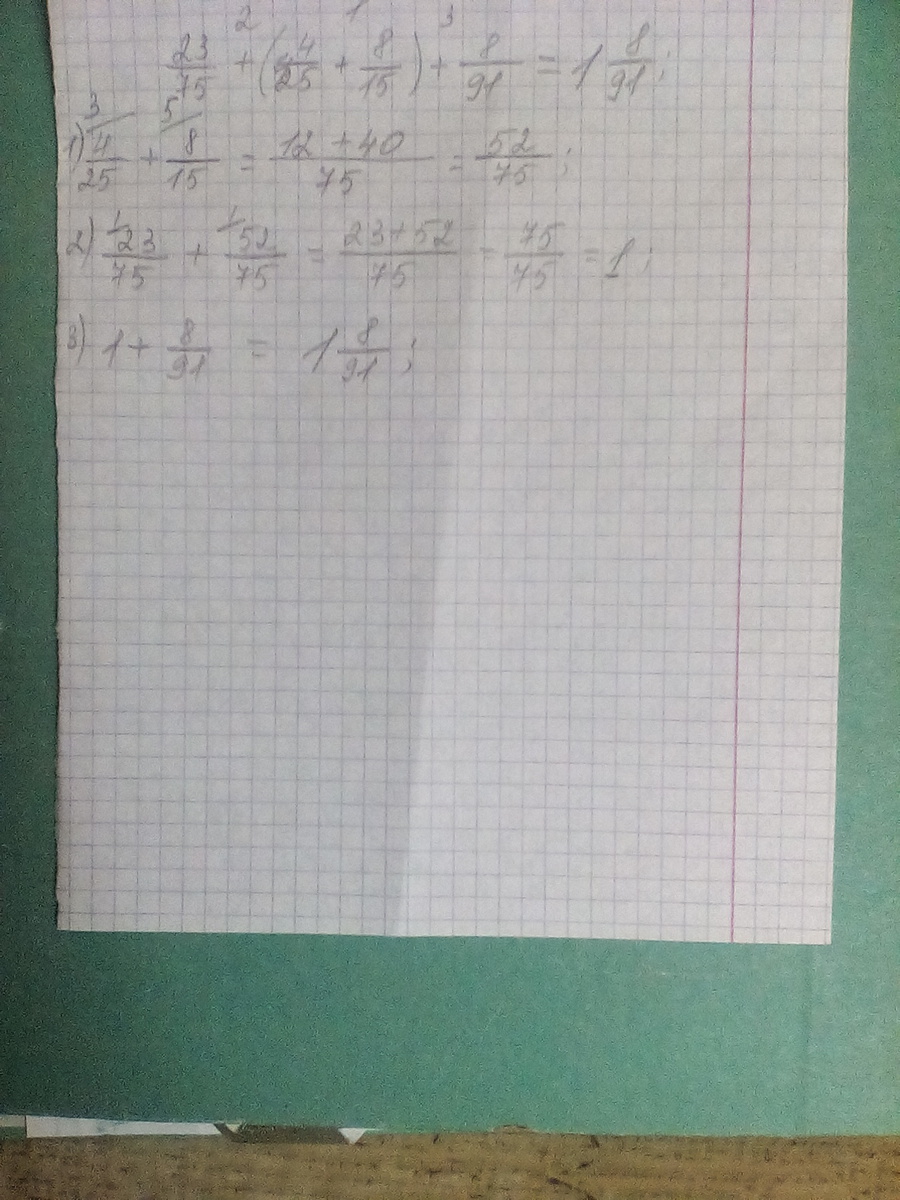 2 1 3
23/75 + (4/25 + 8/15) + 8/91 = 1 8/91;
3 5
1) 4/25 + 8/15 = 12+40/75 = 52/75;
1 1
2) 23/75 + 52/75 = 23+52/75 = 75/75 = 1;
3) 1 + 8/91 = 1 8/91;